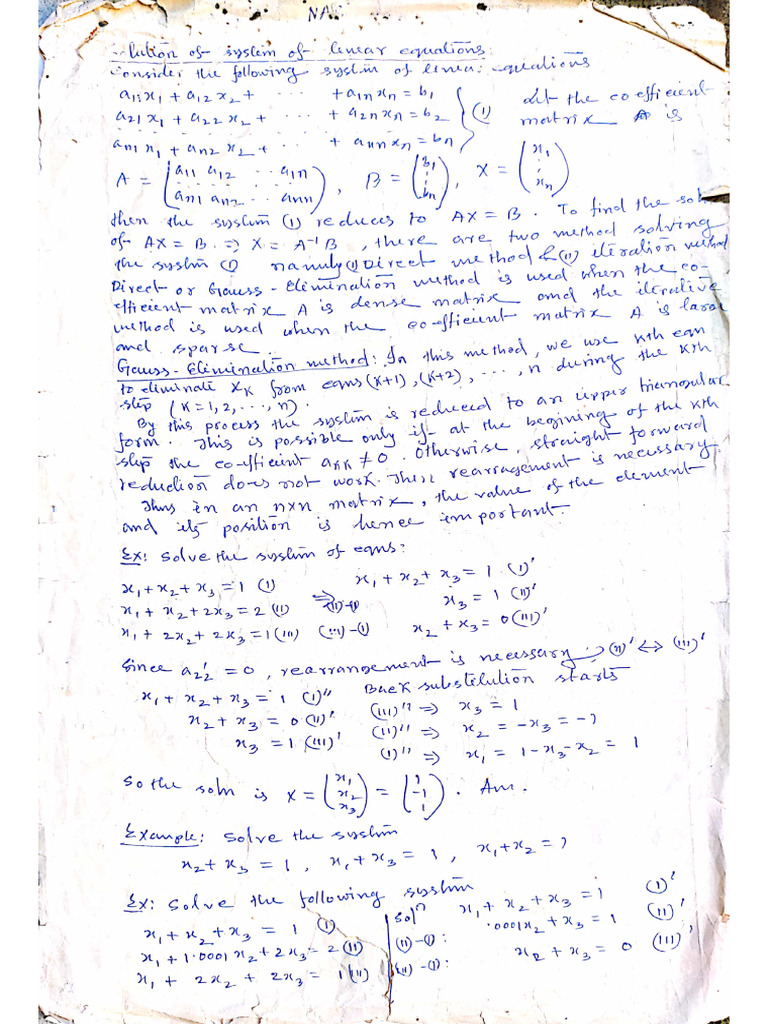 NA
lution of system of linear equations:
Consider the following system of linear equations
a11x1 + a12x2 + + a1nxn = b1
a21x1 + a22x2 + ... + a2nxn = b2 } (I) Let the coefficient
an1x1 + an2x2 + ... + annxn = bn matrix A is
A = (a11 a12 ... a1n / an1 an2 ... ann), B = (b1 ⋮ bn), X = (x1 ⋮ xn)
then the system (I) reduces to AX = B. To find the soln
of AX = B ⇒ X = A⁻¹B, there are two method solving
the system (I) namely (I) Direct method & (II) iteration method
Direct or Gauss-Elimination method is used when the co-
efficient matrix A is dense matrix and the iterative
method is used when the co-efficient matrix A is large
and sparse.
Gauss-Elimination method: In this method, we use Kth eqn
to eliminate xK from eqns (K+1), (K+2), ..., n during the Kth
step (K=1,2,...,n).
By this process the system is reduced to an upper triangular
form. This is possible only if at the begining of the Kth
step the co-efficient aKK ≠ 0. Otherwise, straight forward
reduction does not work. There rearrangement is necessary.
Thus in an n×n matrix, the value of the element
and its position is hence important.
Ex: Solve the system of eqns:
x1 + x2 + x3 = 1 (I) x1 + x2 + x3 = 1 (I)'
x1 + x2 + 2x3 = 2 (II) ⇒ (II)-(I) x3 = 1 (II)'
x1 + 2x2 + 2x3 = 1 (III) (III)-(I) x2 + x3 = 0 (III)'
Since a'22 = 0, rearrangement is necessary. (II)' ↔ (III)'
x1 + x2 + x3 = 1 (I)'' Back substitution starts
x2 + x3 = 0 (II)'' (III)'' ⇒ x3 = 1
x3 = 1 (III)' (II)'' ⇒ x2 = -x3 = -1
(I)'' ⇒ x1 = 1 - x3 - x2 = 1
So the soln is X = (x1 x2 x3) = (1 -1 1). Am.
Example: Solve the system
x2 + x3 = 1, x1 + x3 = 1, x1 + x2 = 1
Ex: Solve the following system
x1 + x2 + x3 = 1 (I) Soln x1 + x2 + x3 = 1 (I)'
x1 + 1.0001x2 + 2x3 = 2 (II) (II)-(I): .0001x2 + x3 = 1 (II)'
x1 + 2x2 + 2x3 = 1 (II) (II)-(I): x2 + x3 = 0 (III)'